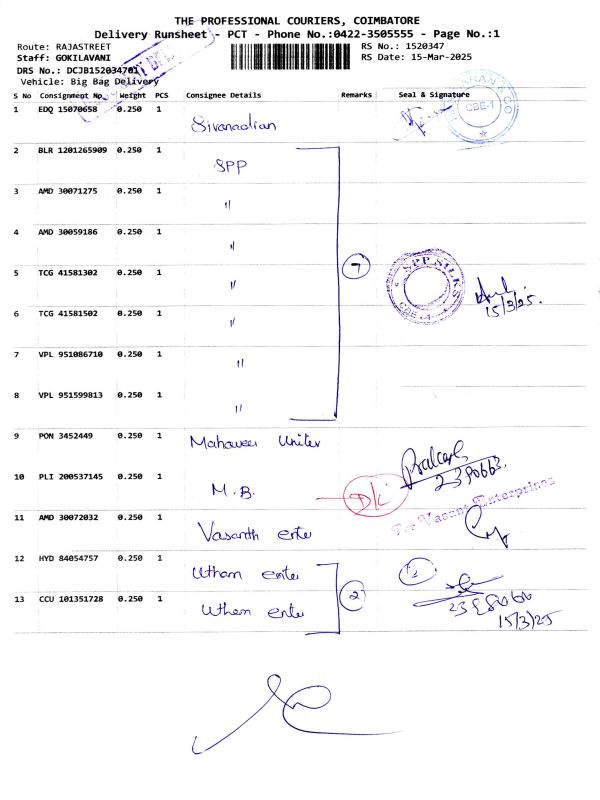 THE PROFESSIONAL COURIERS, COIMBATORE
Delivery Runsheet - PCT - Phone No.:0422-3505555 - Page No.:1
Route: RAJASTREET
Staff: GOKILAVANI
DRS No.: DCJB152034701
Vehicle: Big Bag Delivery
RS No.: 1520347
RS Date: 15-Mar-2025
S No Consignment No. Weight PCS Consignee Details Remarks Seal & Signature
1 EDQ 15070658 0.250 1
CBE-1
2 BLR 1201265909 0.250 1 SPP
3 AMD 30071275 0.250 1 "
4 AMD 30059186 0.250 1 "
5 TCG 41581302 0.250 1 " 7 SPP SILKS CBE-1 15/3/25.
6 TCG 41581502 0.250 1 "
7 VPL 951086710 0.250 1 "
8 VPL 951599813 0.250 1 "
9 PON 3452449 0.250 1 Mahaveer
10 PLI 200537145 0.250 1 M.B. D/L
11 AMD 30072032 0.250 1 Vasanth ente For Vasant Enterprises
12 HYD 84054757 0.250 1 Utham ente
13 CCU 101351728 0.250 1 Utham ente 2
15/3/25